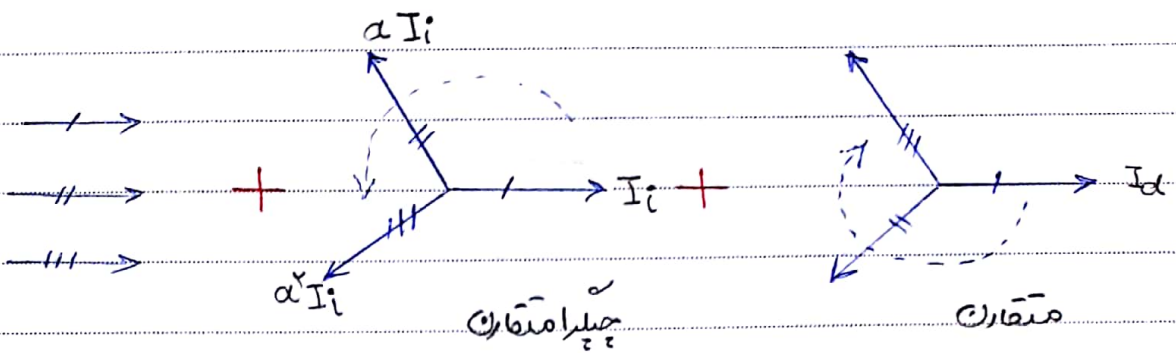 a Iᵢ
+ Iᵢ + Id
a۲ Iᵢ
چپگرا متقارن متقارن